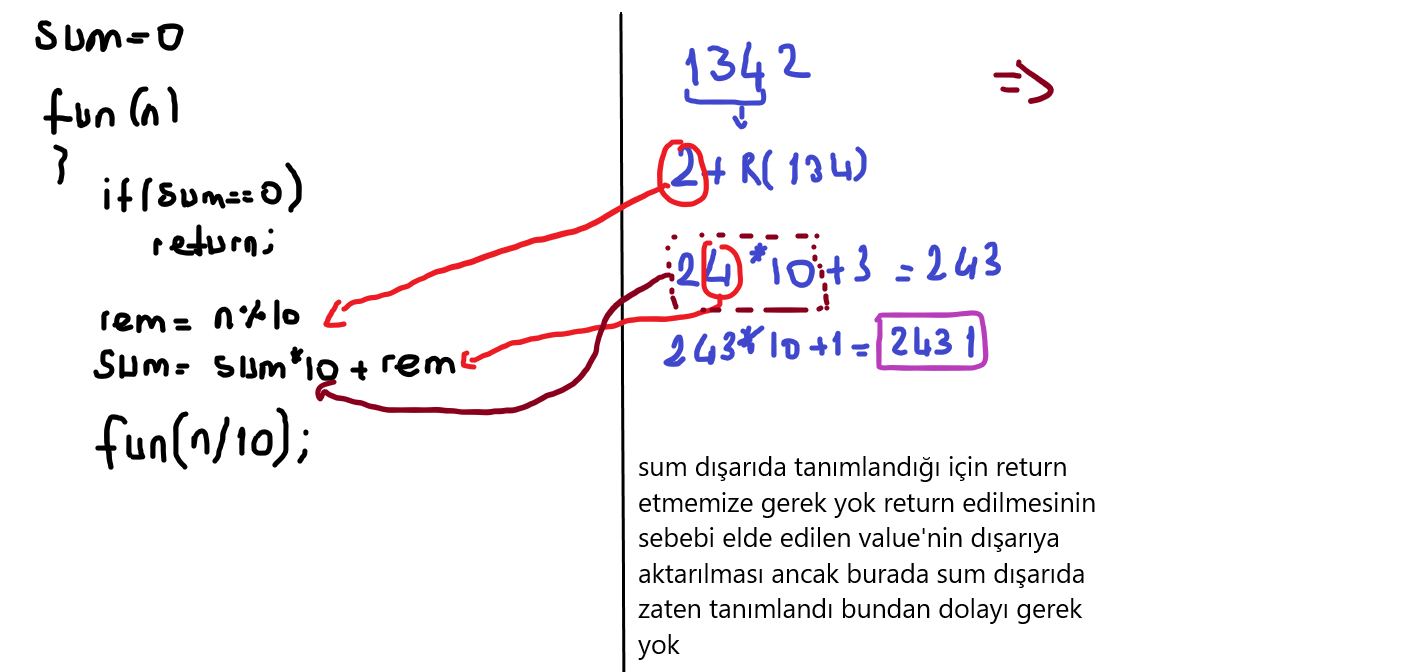 sum=0
fun(n)
}
if(sum==0)
return;
rem= n%10
sum= sum*10 + rem
fun(n/10);
1342
2+ R(134)
24*10+3 = 243
243*10+1= 2431
=>
sum dışarıda tanımlandığı için return
etmemize gerek yok return edilmesinin
sebebi elde edilen value'nin dışarıya
aktarılması ancak burada sum dışarıda
zaten tanımlandı bundan dolayı gerek
yok